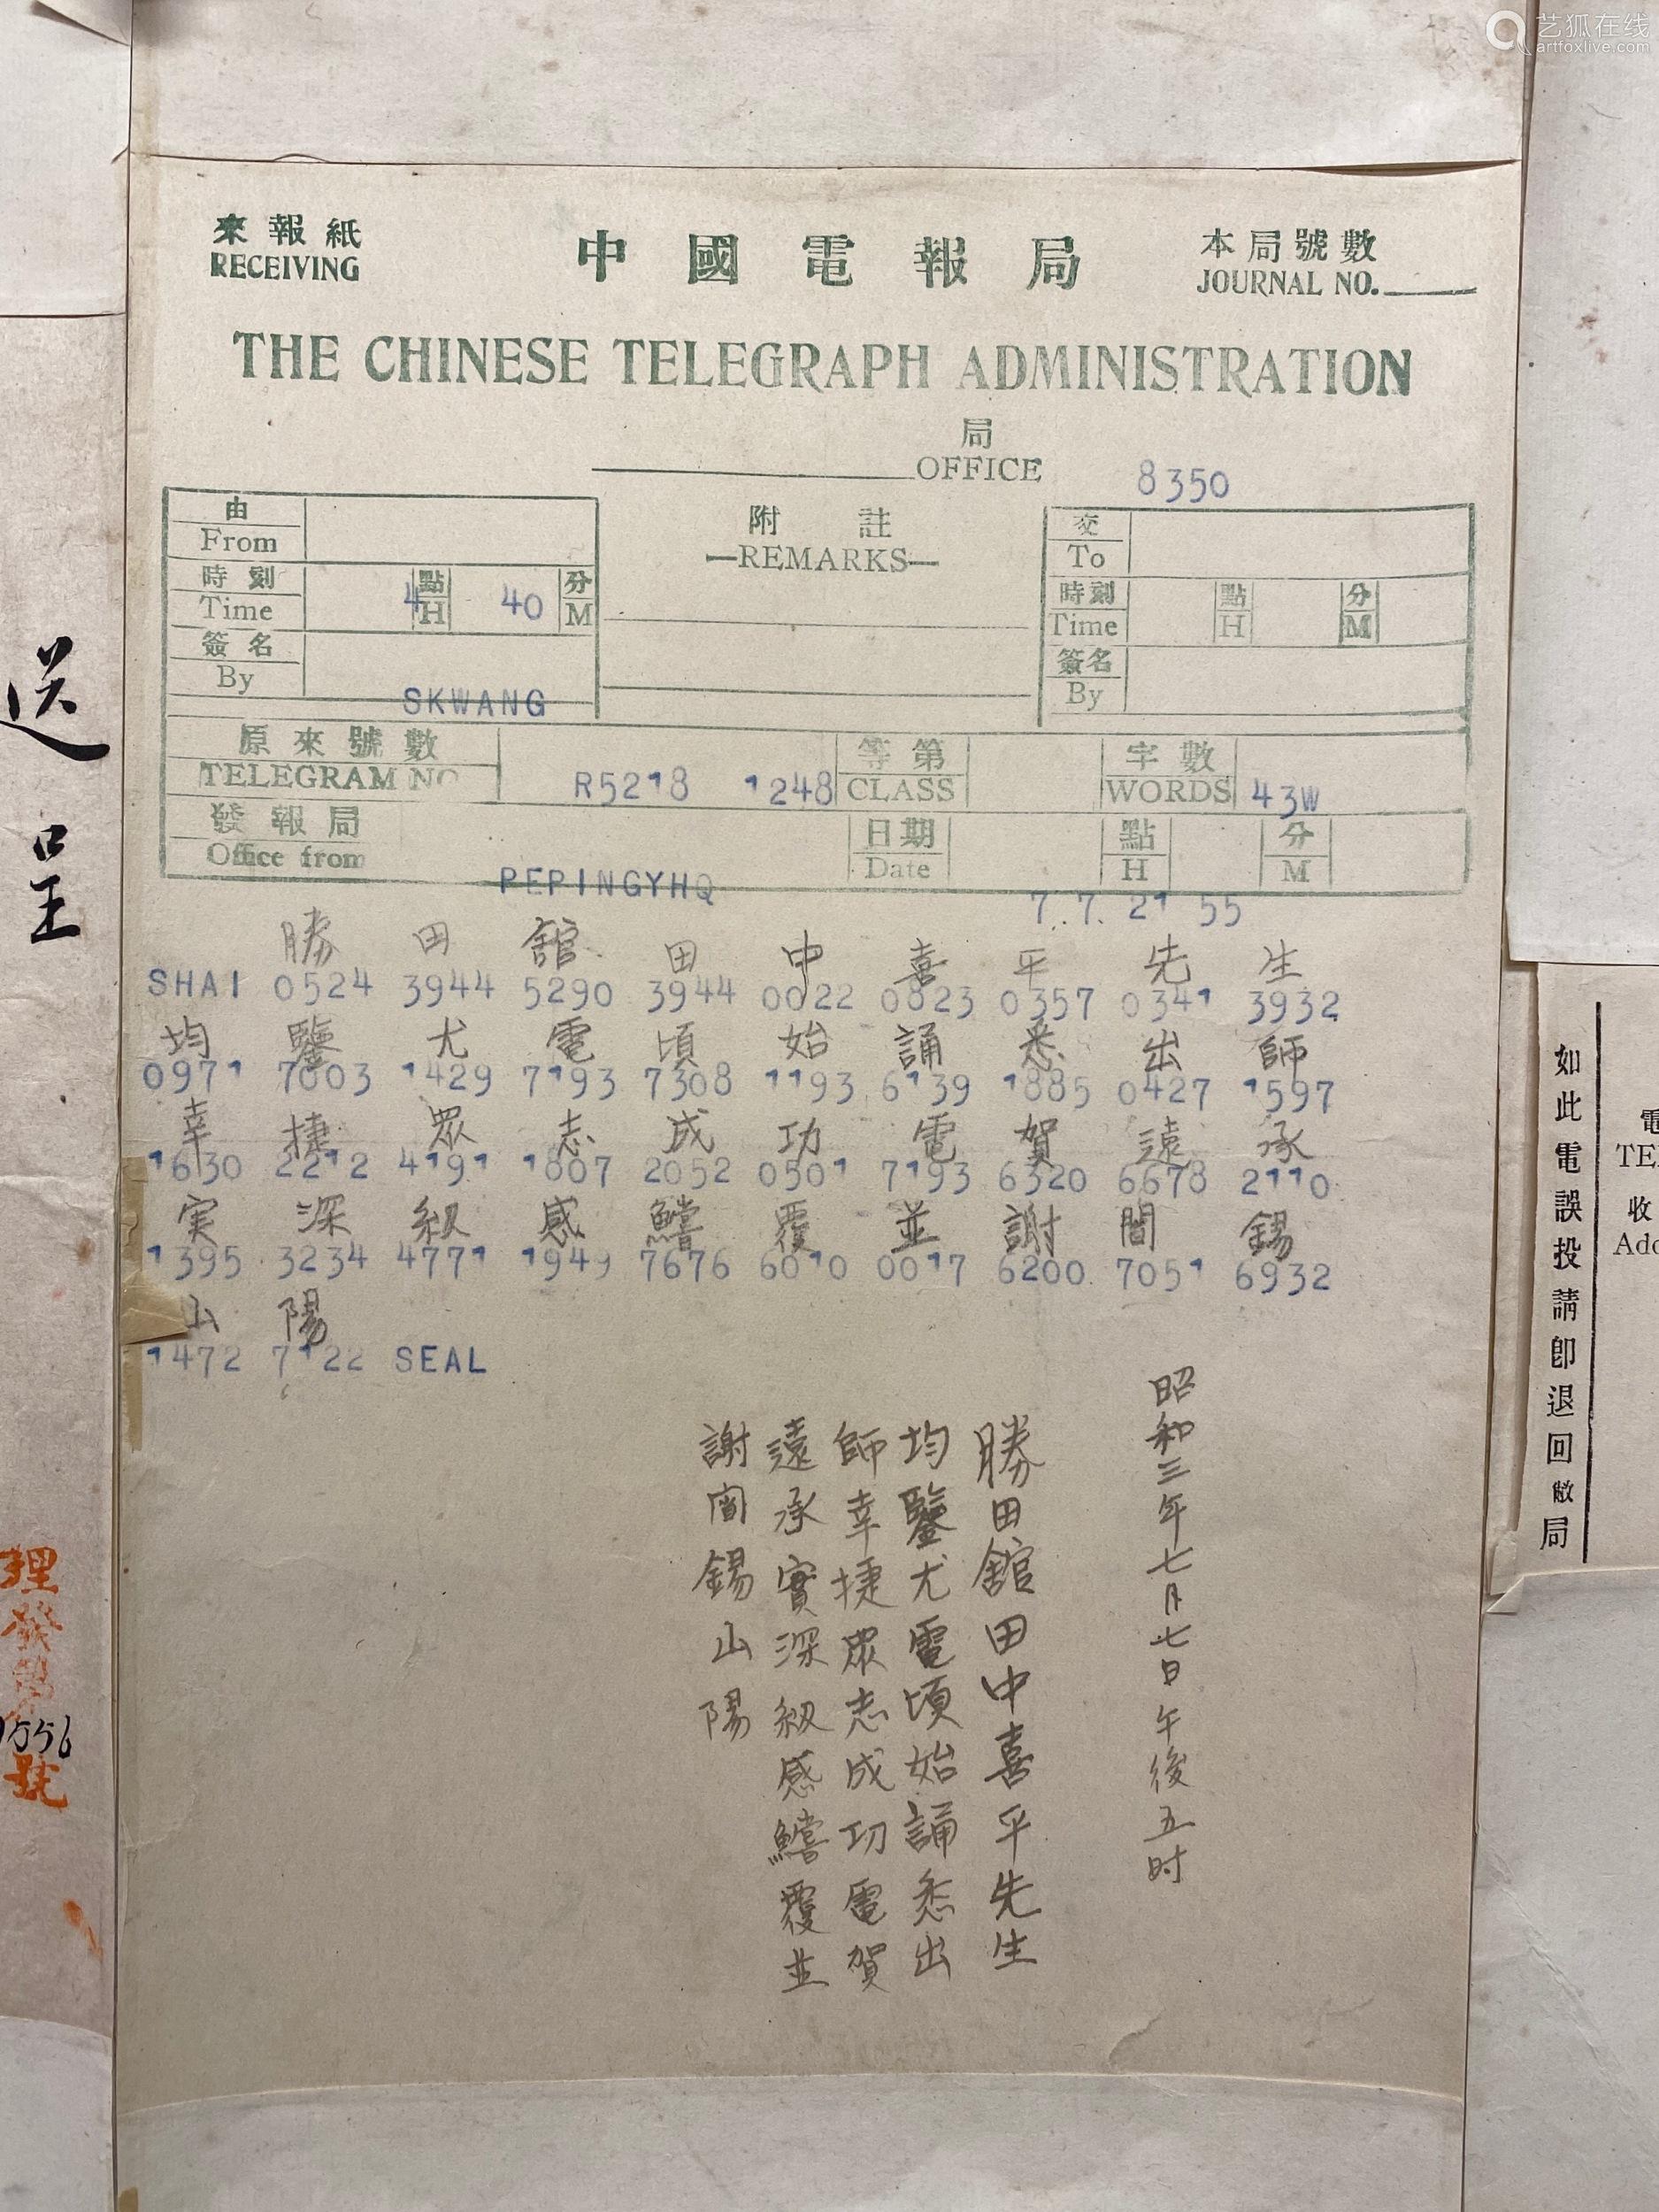 艺狐在线
artfoxlive.com
來報紙
RECEIVING
中國電報局
本局號數
JOURNAL NO.
THE CHINESE TELEGRAPH ADMINISTRATION
局
OFFICE
8350
由
From
時刻
Time
4 點 H 40 分 M
簽名
By
SKWANG
附註
REMARKS
交
To
時刻
Time
點 H 分 M
簽名
By
原來號數
TELEGRAM NO
R5218 1248
等第
CLASS
字數
WORDS
43W
發報局
Office from
PEPINGYHQ
日期
Date
點
H
分
M
7.7. 21 55
勝田舘田中喜平先生
SHAI 0524 3944 5290 3944 0022 0823 0357 0341 3932
均鑒尤電頃始誦悉出師
0971 7003 1429 7193 7308 1193 6139 1885 0427 1597
幸捷眾志成功電賀遠承
1630 2212 4191 1807 2052 0501 7193 6320 6678 2110
実深紉感鱨覆並謝閻錫
1395 3234 4771 1949 7676 6010 0017 6200 7051 6932
山陽
1472 7122 SEAL
昭和三年七月七日午後五时
勝田舘田中喜平先生
均鑒尤電頃始誦悉出
師幸捷眾志成功電賀
遠承實深紉感鱨覆並
謝閻錫山陽
送呈
理發
556
號
如此電誤投請卽退回敝局
電
TE
收
Add